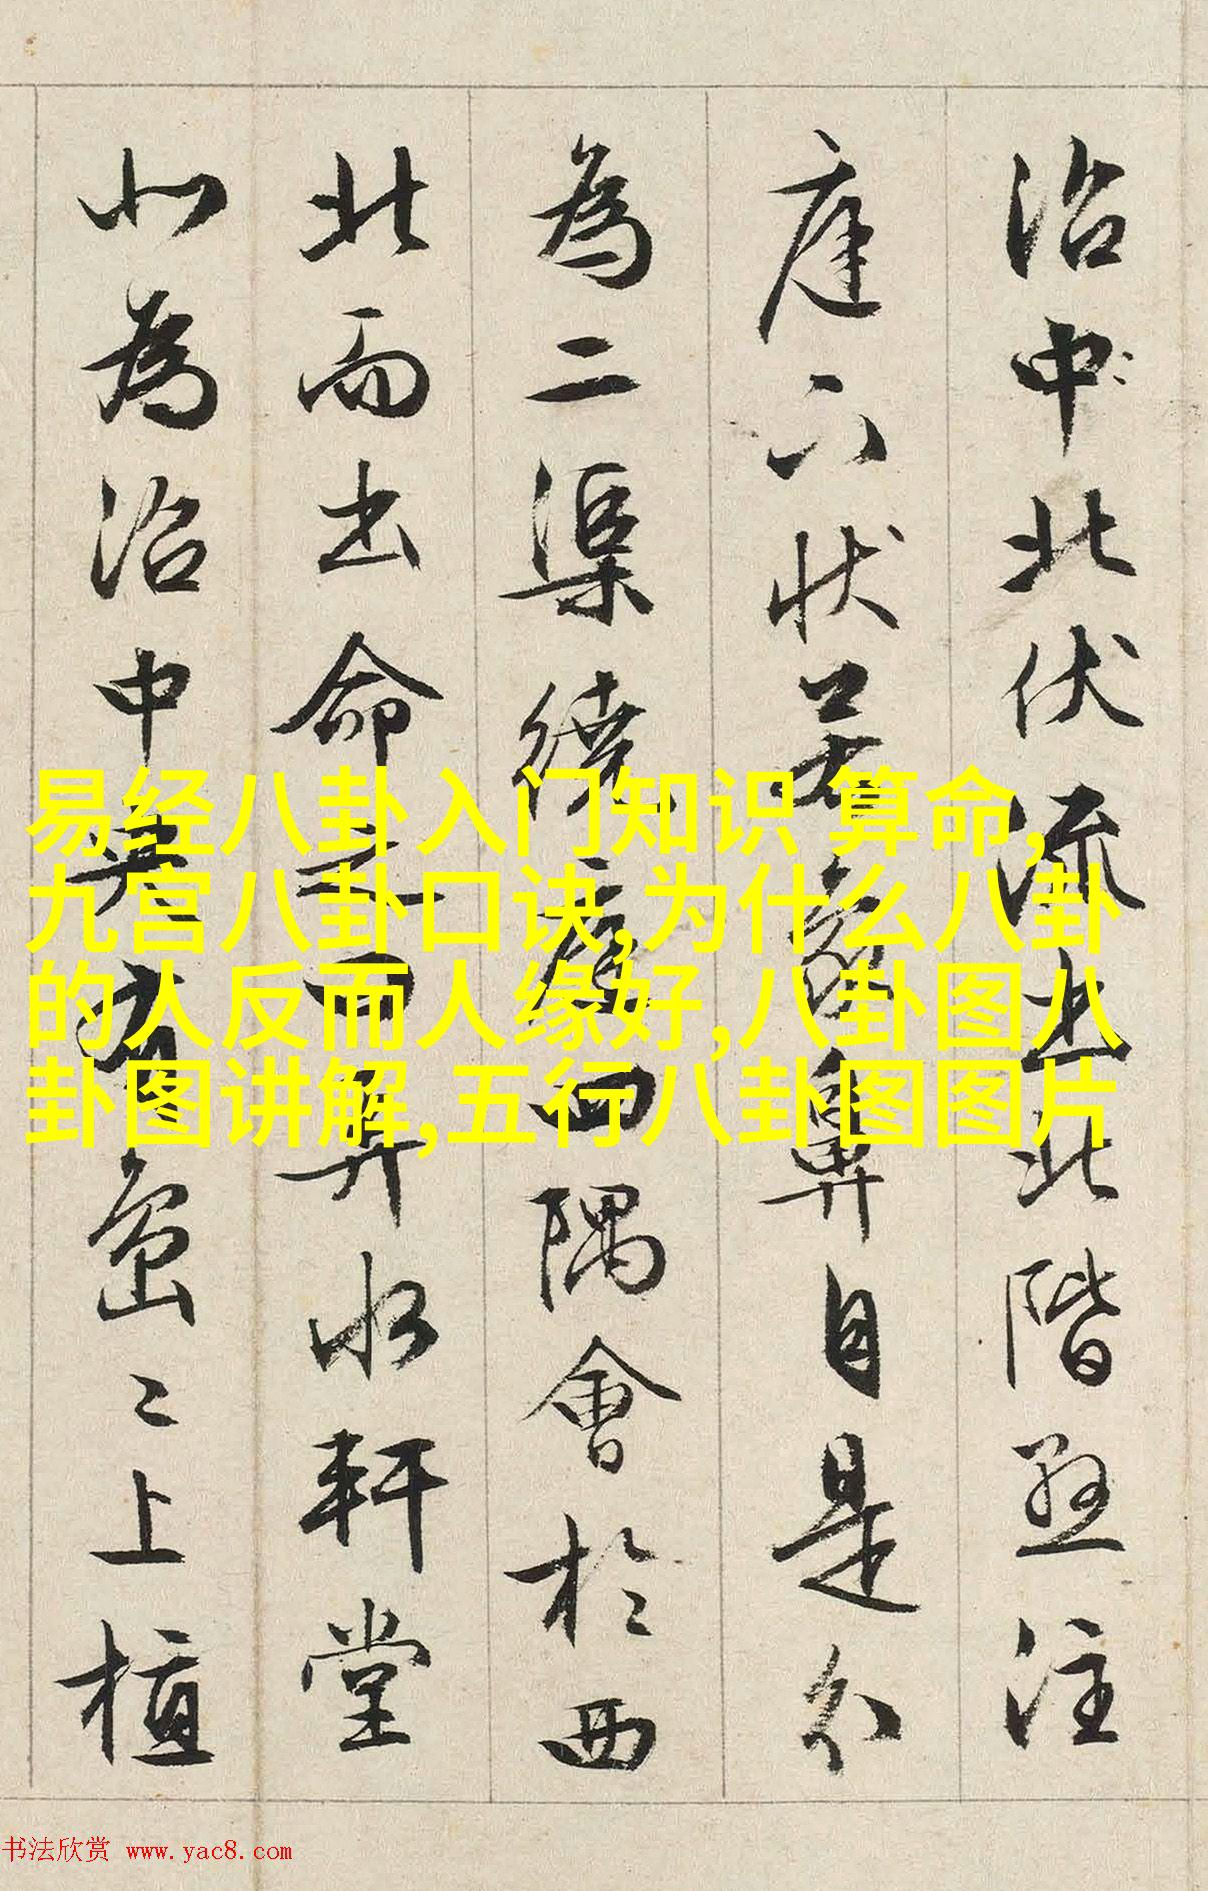 沼中北伏流出北階懸注
庭下狀若象鼻自是分
為二渠繞庭四隅會於西
北而出命之曰弄水軒堂
北為沼中央有島〻上植
易经八卦入门知识 算命,
九宫八卦口诀,为什么八卦
的人反而人缘好,八卦图八
卦图讲解,五行八卦图图片
书法欣赏 www.yac8.com